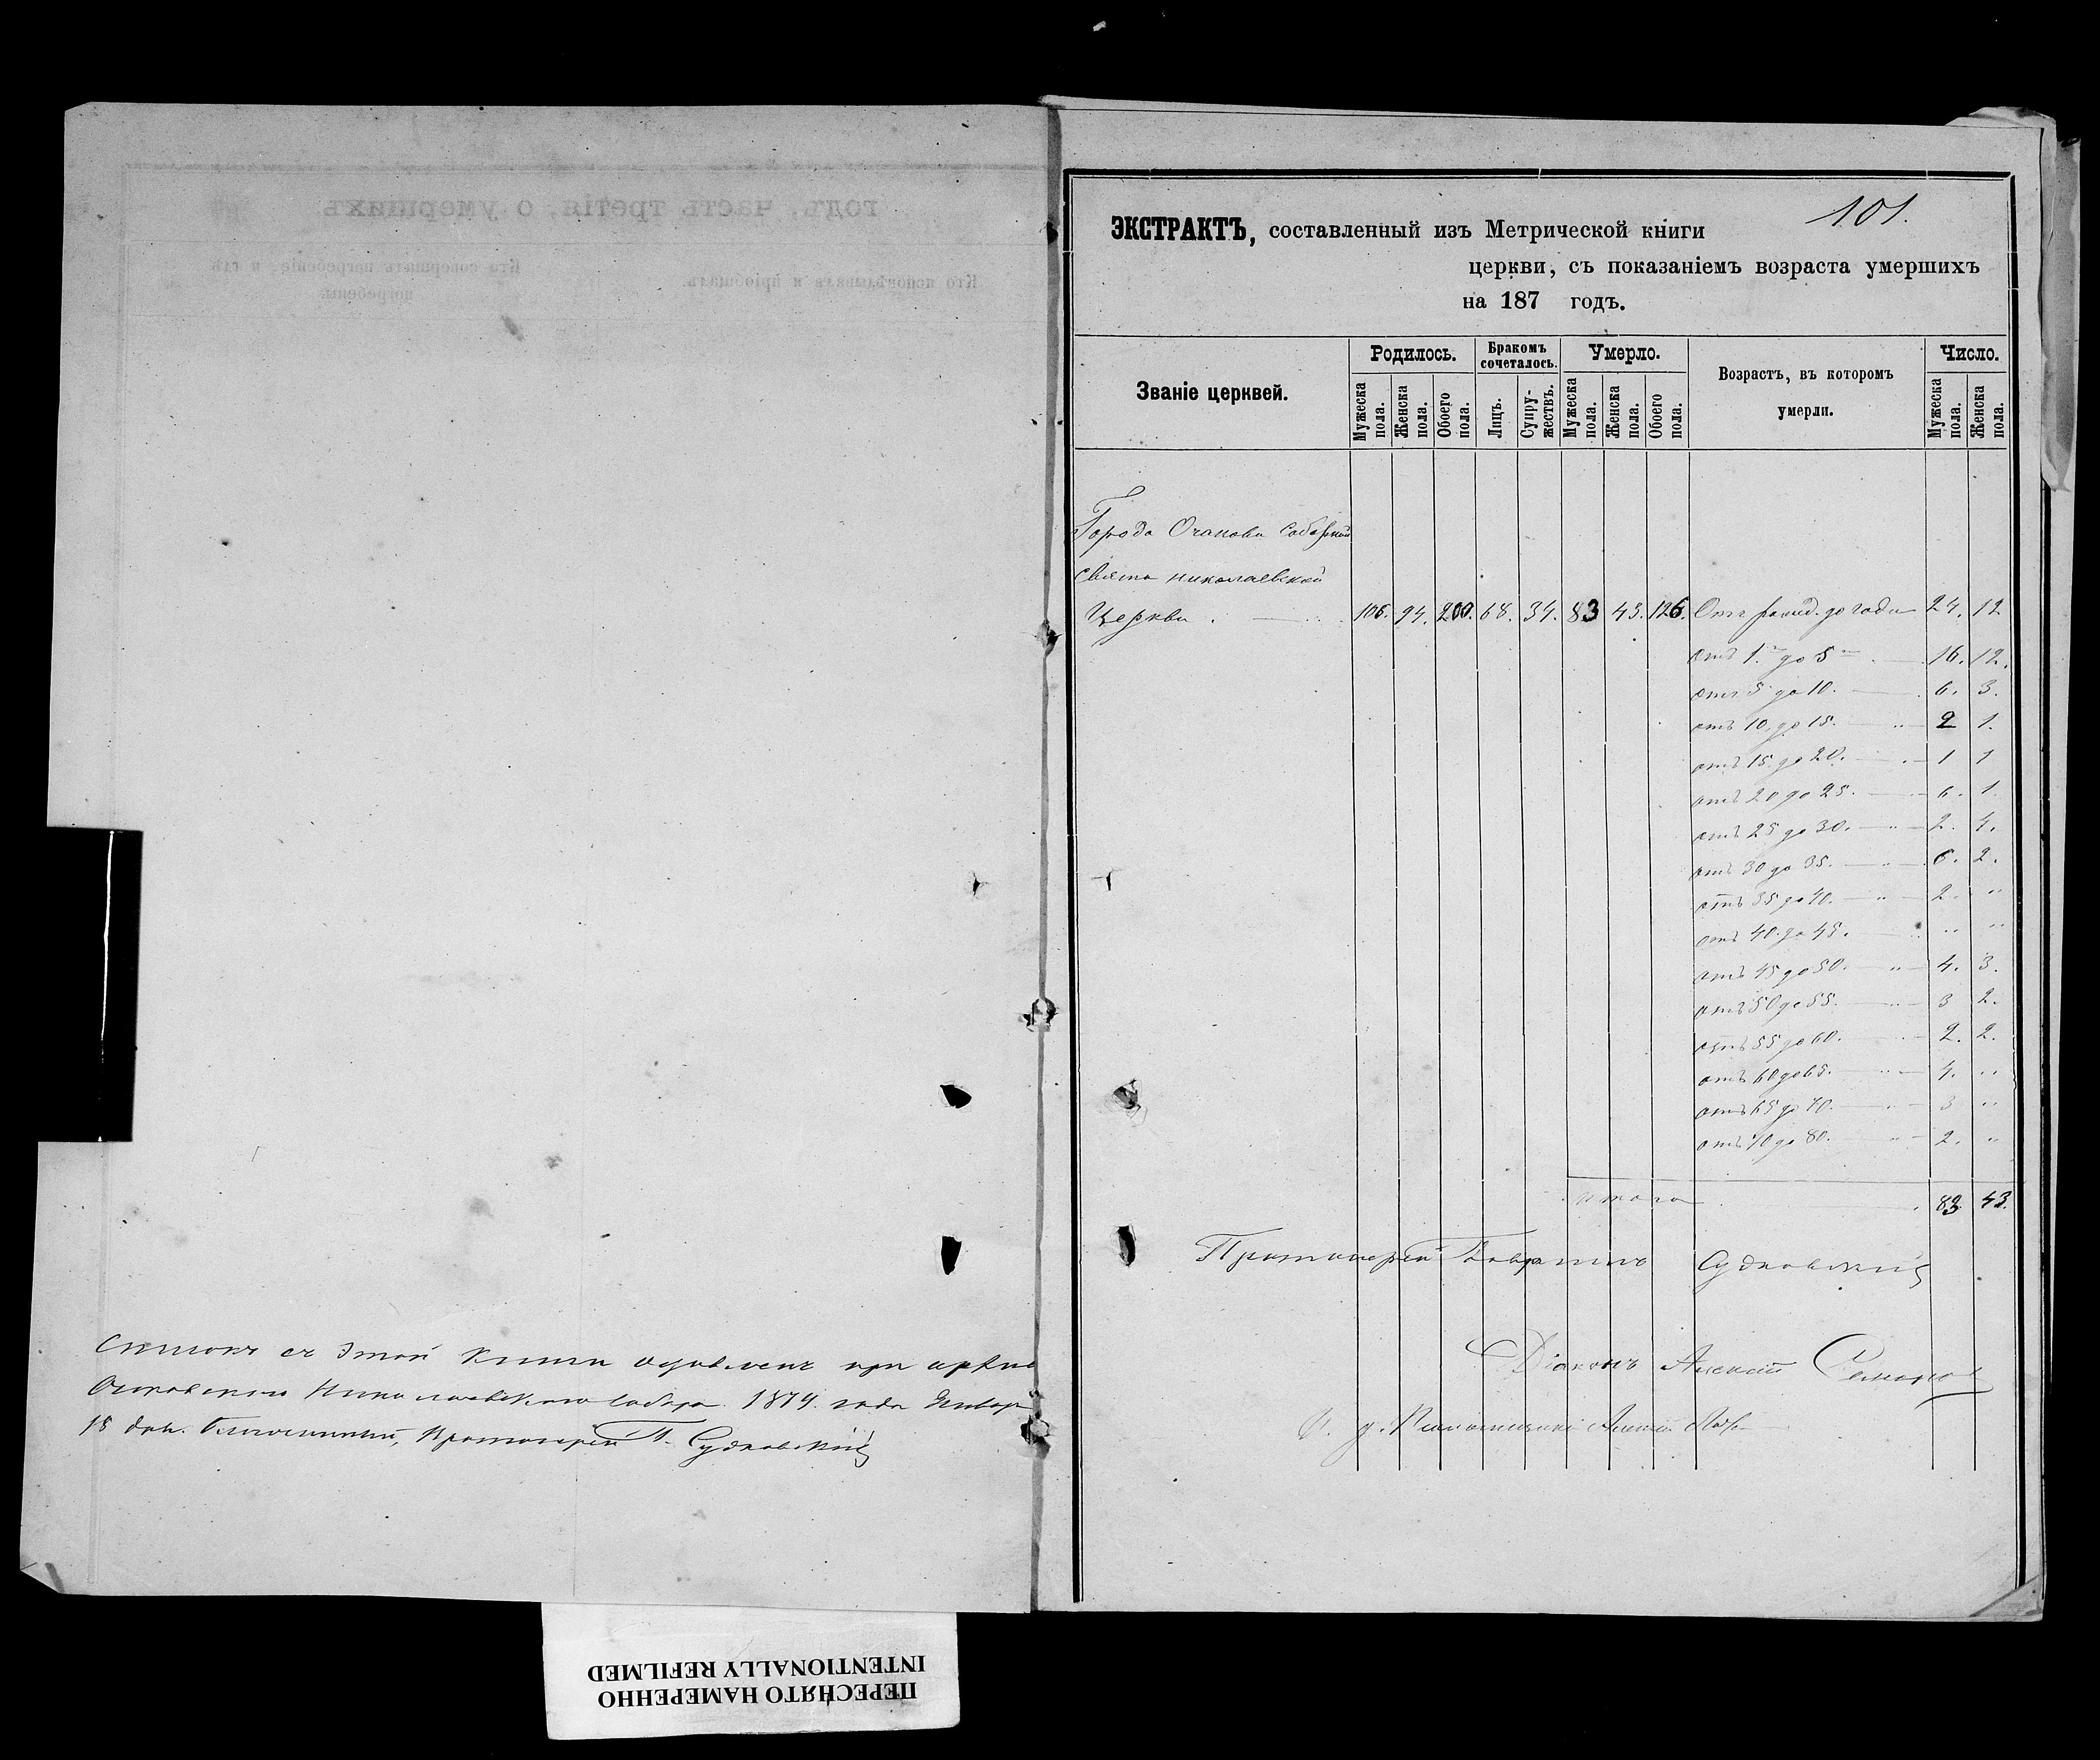 Списокъ съ этой книги оставленъ при архивѣ
Очаковскаго Николаевскаго Собора. 1874. года Январ
15 дня. Благочинный, Протоіерей Г. Судковскій
101.
ЭКСТРАКТЪ, составленный изъ Метрической книги
церкви, съ показаніемъ возраста умершихъ
на 187 годъ.
Званіе церквей.
Родилось.
Мужеска пола.
Женска пола.
Обоего пола.
Бракомъ сочеталось.
Лицъ.
Супружествъ.
Умерло.
Мужеска пола.
Женска пола.
Обоего пола.
Возрастъ, въ которомъ
умерли.
Число.
Мужеска пола.
Женска пола.
Города Очакова Соборной
Свято Николаевской
Церкви . 106. 94. 200. 68. 34. 83 43. 126. Отъ рожд. до года 24. 12
отъ 1. до 5 16. 12.
отъ 5 до 10. 6. 3.
отъ 10. до 15. 2 1.
отъ 15. до 20. 1 1
отъ 20 до 25. 6. 1.
отъ 25 до 30. 2. 4.
отъ 30 до 35. 6. 2.
отъ 35 до 40. 2. "
отъ 40. до 45. " "
отъ 45 до 50. 4. 3.
отъ 50 до 55. 3 2.
отъ 55 до 60. 2. 2.
отъ 60 до 65. 4. "
отъ 65 до 70. 3 "
отъ 70 до 80. 2. "
итого 83. 43.
Протоіерей Гавріилъ Судковскій
Діаконъ Алексѣй
И. д. Псаломщика
ПЕРЕСНЯТО НАМЕРЕННО
INTENTIONALLY REFILMED